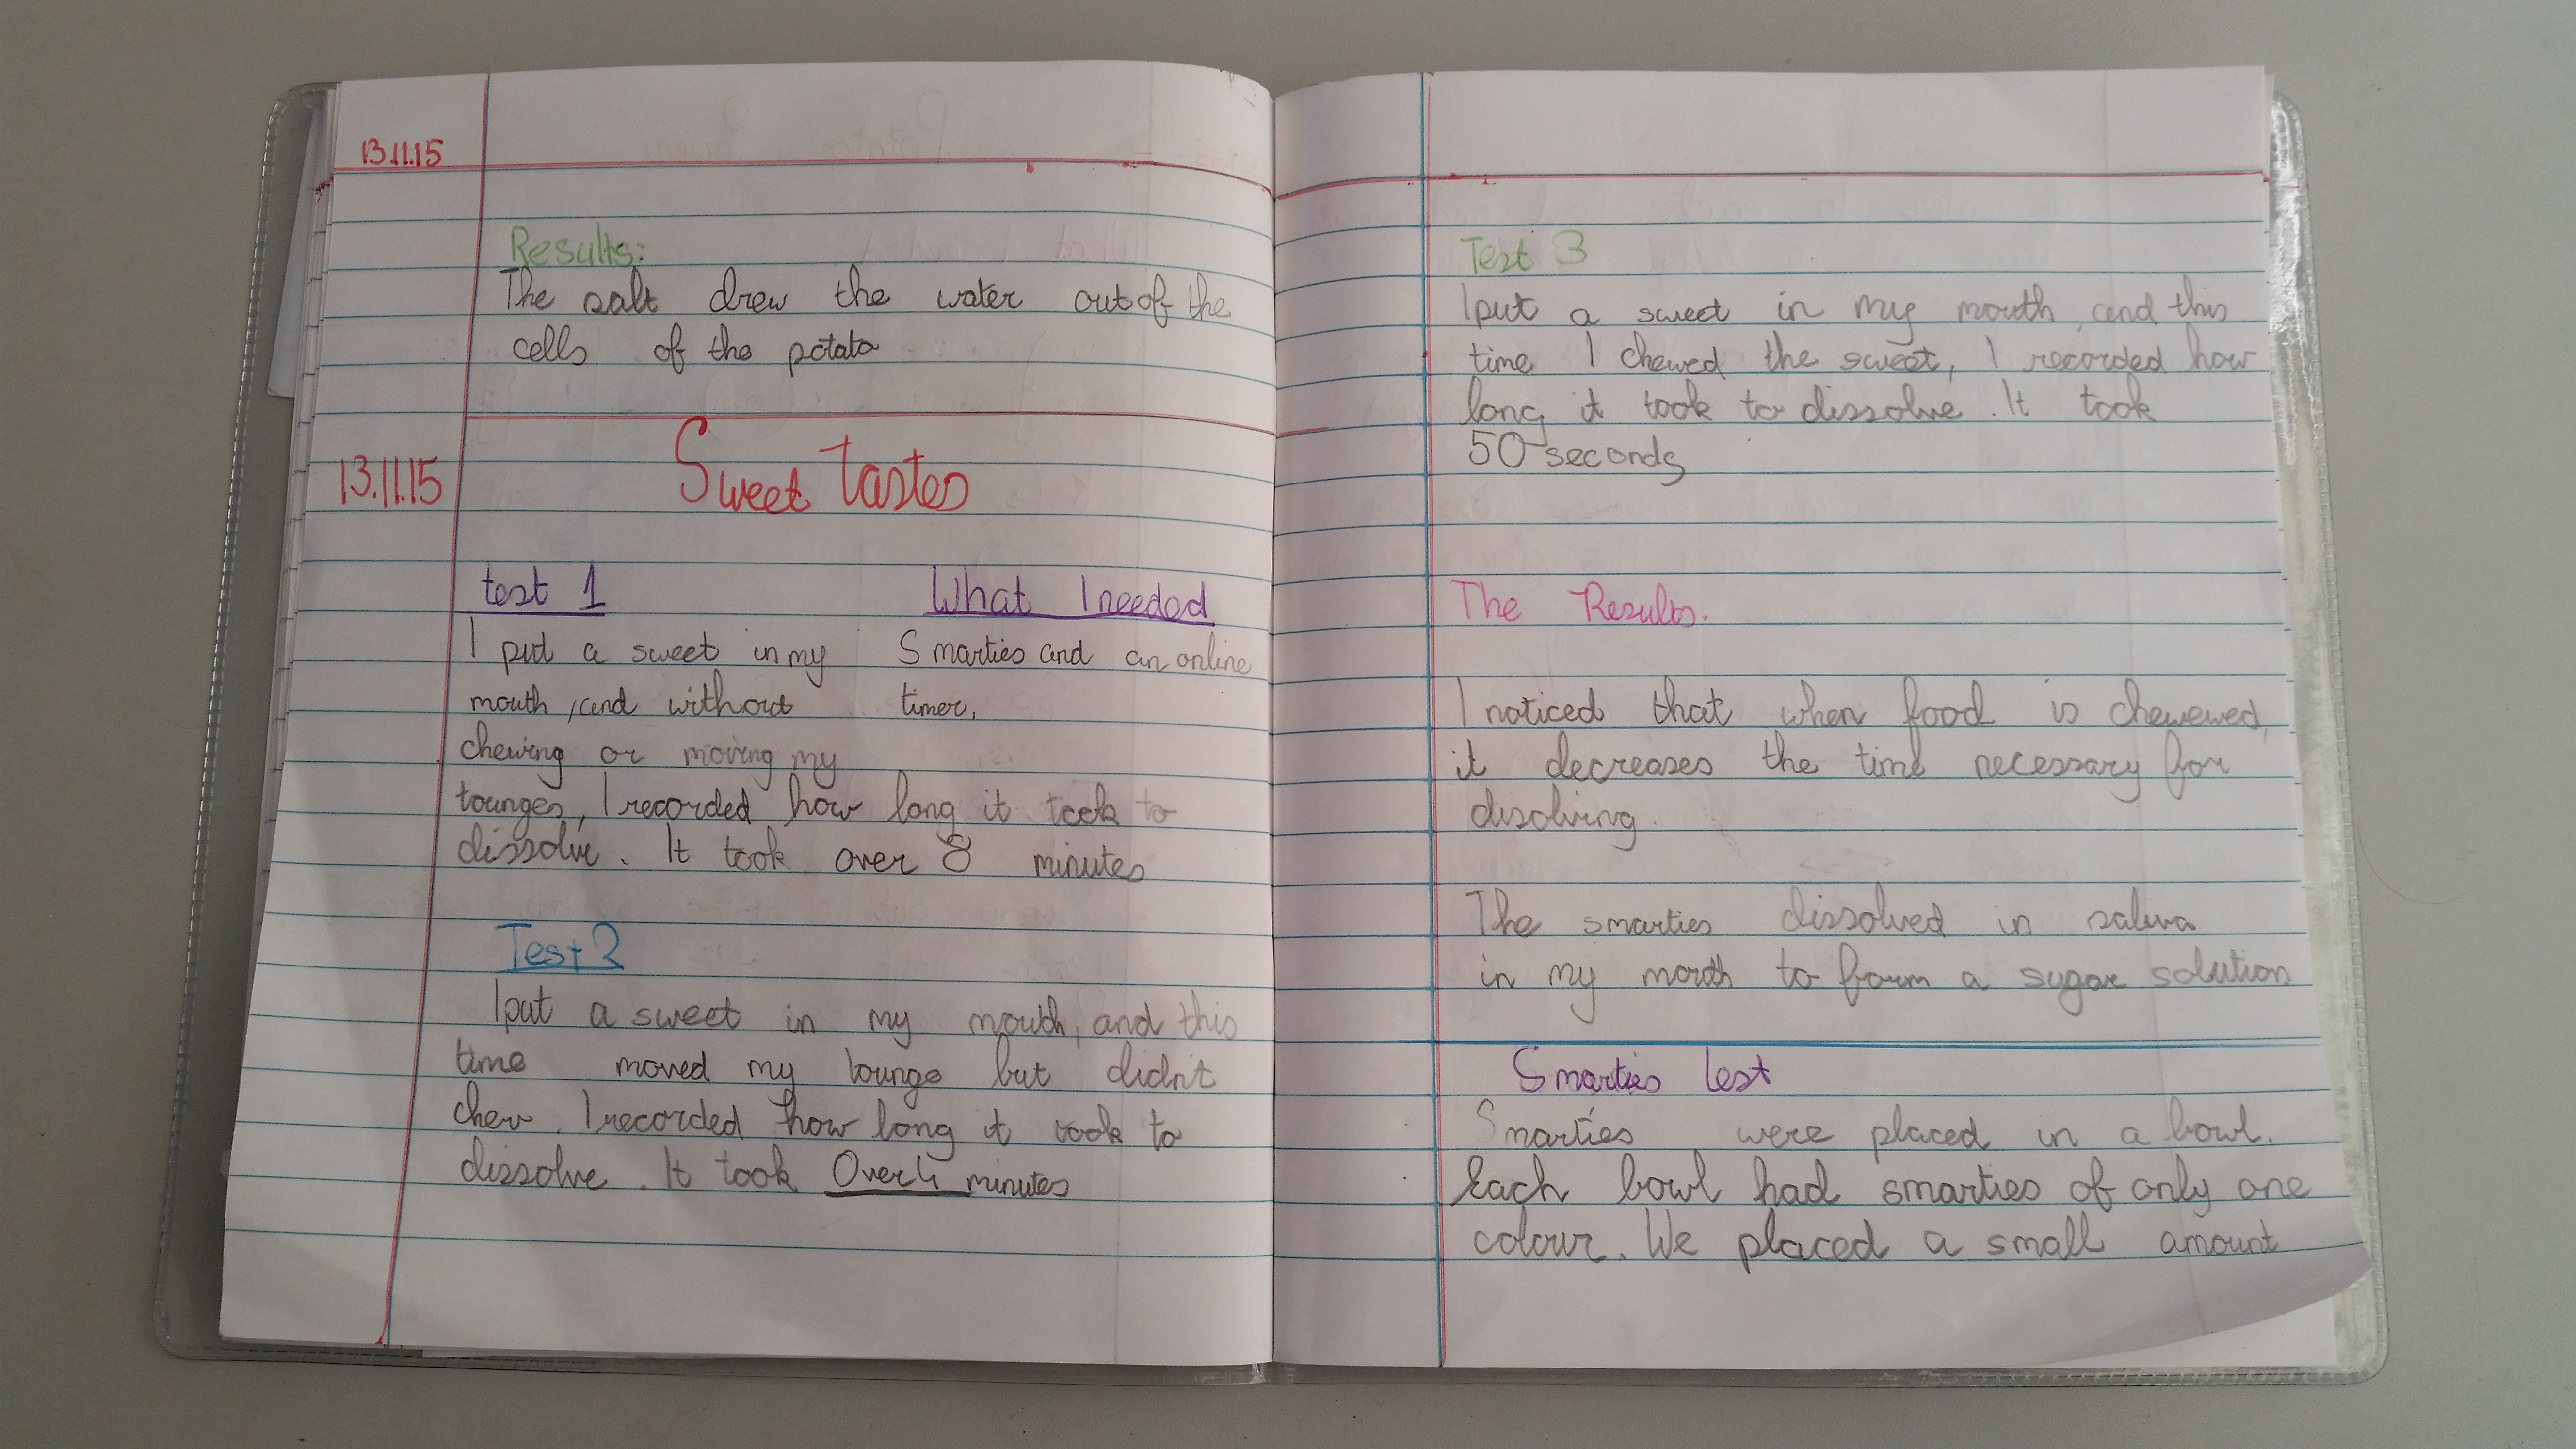 13.11.15
Results:
The salt drew the water out of the
cells of the potato
13.11.15 Sweet Tastes
test 1
I put a sweet in my
mouth, and without
chewing or moving my
tounges, I recorded how long it took to
dissolve. It took over 8 minutes
What I needed
Smarties and an online
timer,
Test 2
I put a sweet in my mouth, and this
time moved my tounge but didn't
chew. I recorded how long it took to
dissolve. It took Over 4 minutes
Test 3
I put a sweet in my mouth, and this
time I chewed the sweet, I recorded how
long it took to dissolve. It took
50 seconds
The Results.
I noticed that when food is chewewed,
it decreases the time necessary for
disolving.
The smarties dissolved in saliva
in my mouth to form a sugar solution
Smarties test
Smarties were placed in a bowl.
Each bowl had smarties of only one
colour. We placed a small amount